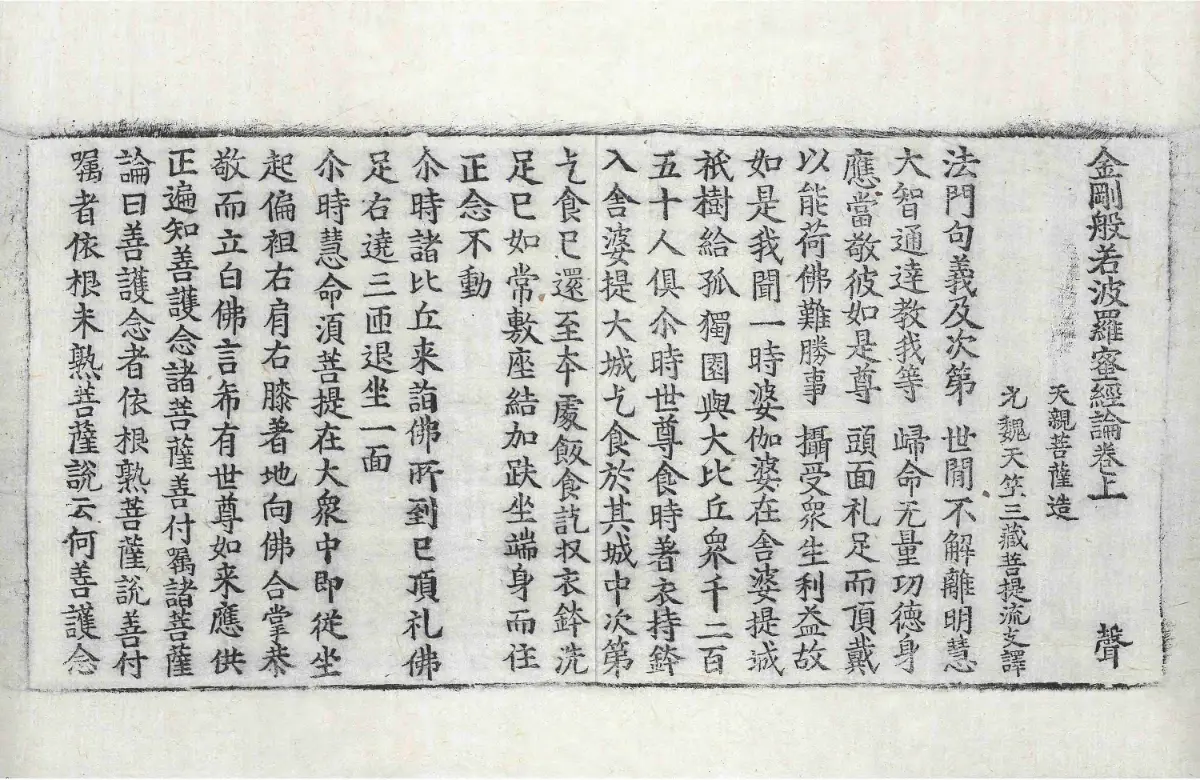 金剛般若波羅蜜經論卷上 聲
天親菩薩造
元魏天竺三藏菩提流支譯
法門句義及次第 世閒不解離明慧
大智通達教我等 歸命无量功德身
應當敬彼如是尊 頭面礼足而頂戴
以能荷佛難勝事 攝受衆生利益故
如是我聞一時婆伽婆在舍婆提城
祇樹給孤獨園與大比丘衆千二百
五十人俱尒時世尊食時著衣持鉢
入舍婆提大城乞食於其城中次第
乞食已還至夲處飯食訖収衣鉢洗
足已如常敷座結加趺坐端身而住
正念不動
尒時諸比丘来詣佛所到已頂礼佛
足右遶三匝退坐一面
尒時慧命湏菩提在大衆中即從坐
起偏袒右肩右膝著地向佛合掌恭
敬而立白佛言希有世尊如来應供
正遍知善護念諸菩薩善付囑諸菩薩
論曰善護念者依根熟菩薩說善付
囑者依根未熟菩薩說云何善護念